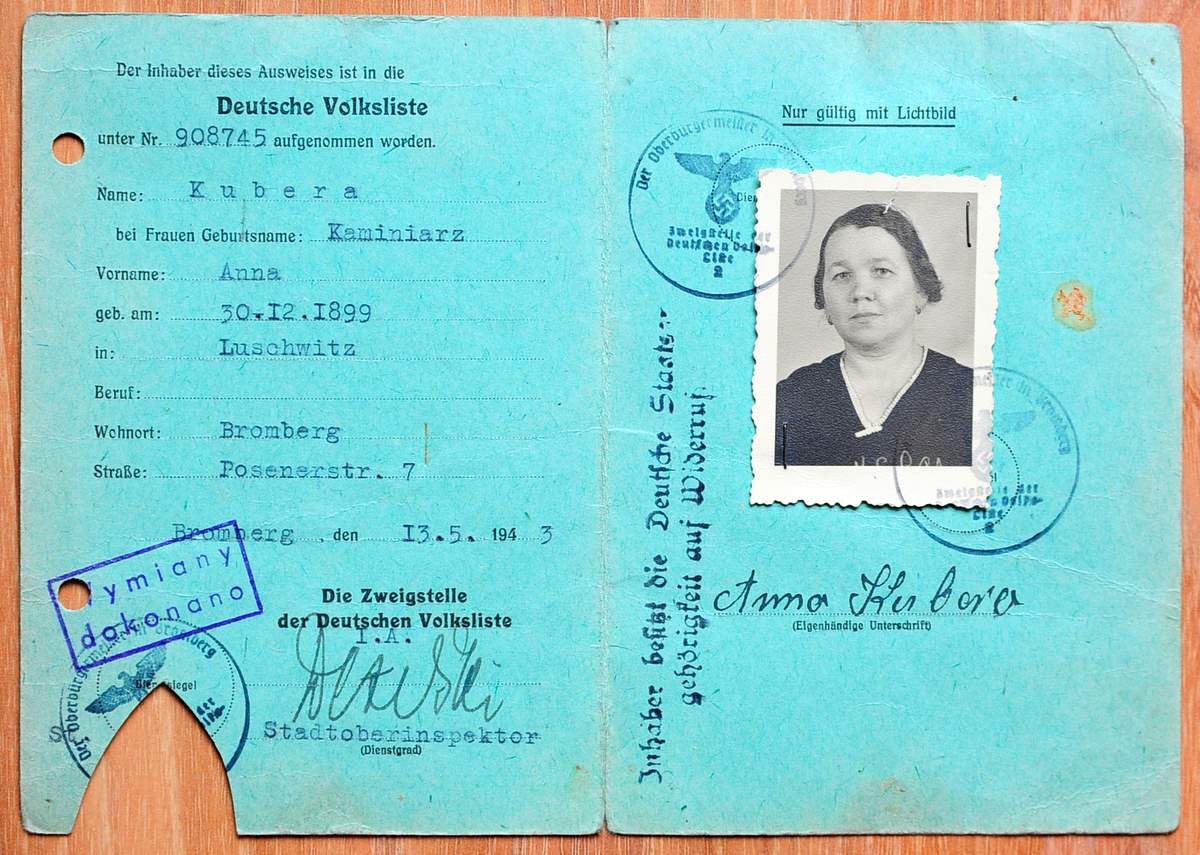 Der Inhaber dieses Ausweises ist in die
Deutsche Volksliste
unter Nr. 908745 aufgenommen worden.
Name: Kubera
bei Frauen Geburtsname: Kaminiarz
Vorname: Anna
geb. am: 30.12.1899
in: Luschwitz
Beruf:
Wohnort: Bromberg
Straße: Posenerstr. 7
Bromberg, den 13.5. 1943
Wymiany
dokonano
Die Zweigstelle
der Deutschen Volksliste
I.A.
Stadtoberinspektor
(Dienstgrad)
Der Oberbürgermeister in Bromberg
Nur gültig mit Lichtbild
Der Oberbürgermeister in
Zweigstelle der
Deutschen Volks-
Liste
2
Inhaber besitzt die Deutsche Staatsan-
gehörigkeit auf Widerruf.
meister in Bromberg
Zweigstelle der
Liste
2
Anna Kubera
(Eigenhändige Unterschrift)